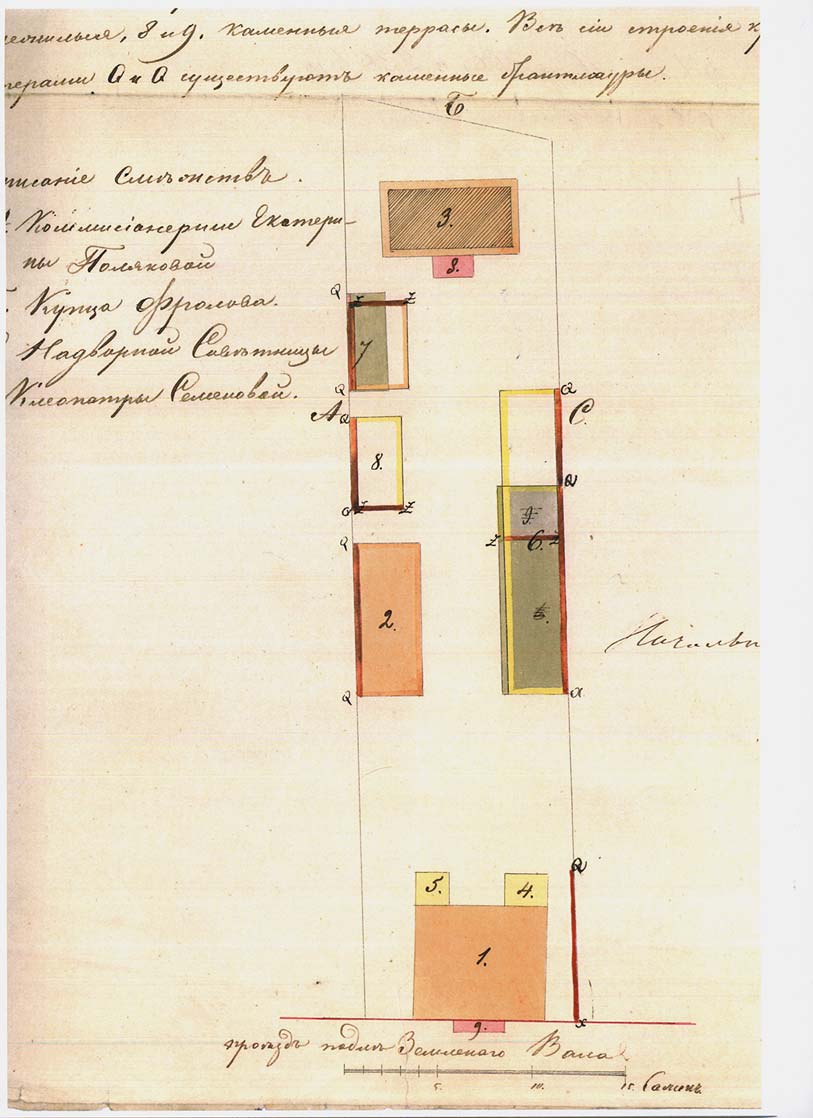 8 и 9. каменныя террасы. Всѣ сіи строенія
Q и Q существуютъ каменные брантмауры.
Б
писаніе Смѣжствъ.
Коммисіонерши Екатери-
ны Поляковой
Купца Фролова.
Надворной Совѣтницы
Клеопатры Семеновой.
3.
8.
Q
Z Z
7
Q
А Q
8.
Q Z Z
Q
2.
Q
Q
С.
Q
9
Z 6. Z
Q
Q
5. 4.
1.
9.
проездъ подлѣ Земленаго Вала
5. 10. 15. Сажень